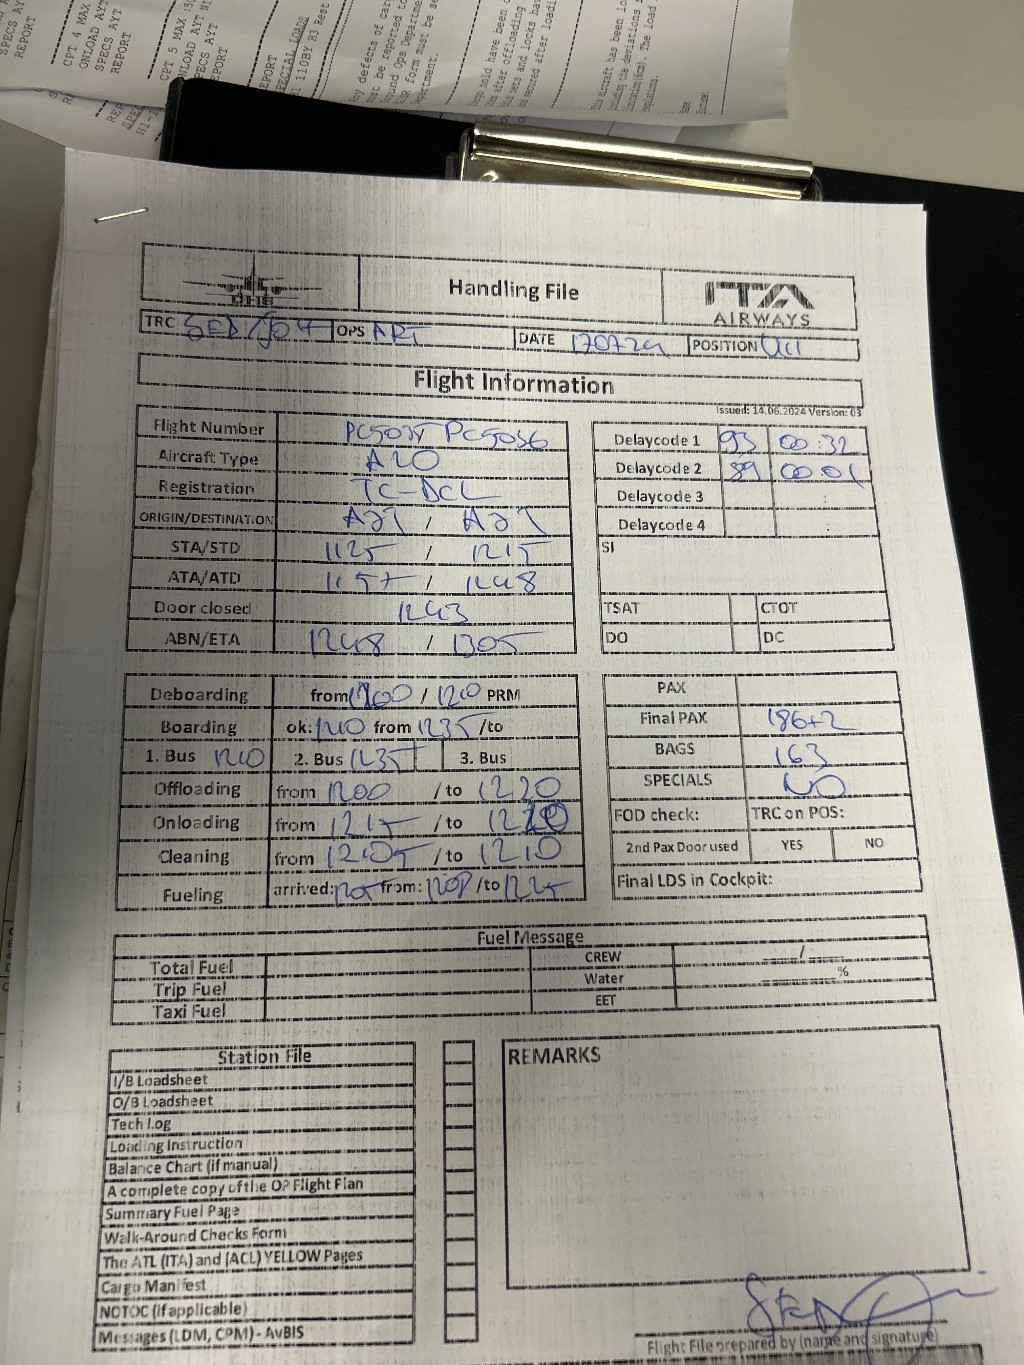 CPT 4 MAX
ONLOAD AYT
SPECS AYT
REPORT
CPT 5 MAX
ONLOAD AYT
SPECS AYT
REPORT
SPECIAL LOADS
Handling File
ITA
AIRWAYS
TRC OPS ART DATE POSITION
Flight Information
Issued: 14.06.2024 Version: 03
Flight Number PC5035 PC5036
Aircraft Type A20
Registration TC-DCL
ORIGIN/DESTINATION /
STA/STD 1125 / 1215
ATA/ATD 1157 / 1248
Door closed 1243
ABN/ETA 1248 / 1305
Delaycode 1 93 00:32
Delaycode 2 89 00 01
Delaycode 3 :
Delaycode 4 :
SI
TSAT CTOT
DO DC
Deboarding from 1200 / 1210 PRM
Boarding ok: 1210 from 1235 /to
1. Bus 1210 2. Bus 1235 3. Bus
Offloading from 1200 /to 1220
Onloading from 1215 /to
Cleaning from 1205 /to 1210
Fueling arrived: 1205 from: 1208 /to 1225
PAX
Final PAX 186+2
BAGS 163
SPECIALS NO
FOD check: TRC on POS:
2nd Pax Door used YES NO
Final LDS in Cockpit:
Fuel Message
Total Fuel CREW /
Trip Fuel Water %
Taxi Fuel EET
Station File
I/B Loadsheet
O/B Loadsheet
Tech Log
Loading Instruction
Balance Chart (if manual)
A complete copy of the OP Flight Plan
Summary Fuel Page
Walk-Around Checks Form
The ATL (ITA) and (ACL) YELLOW Pages
Cargo Manifest
NOTOC (if applicable)
Messages (LDM, CPM) - AvBIS
REMARKS
Flight File prepared by (name and signature)